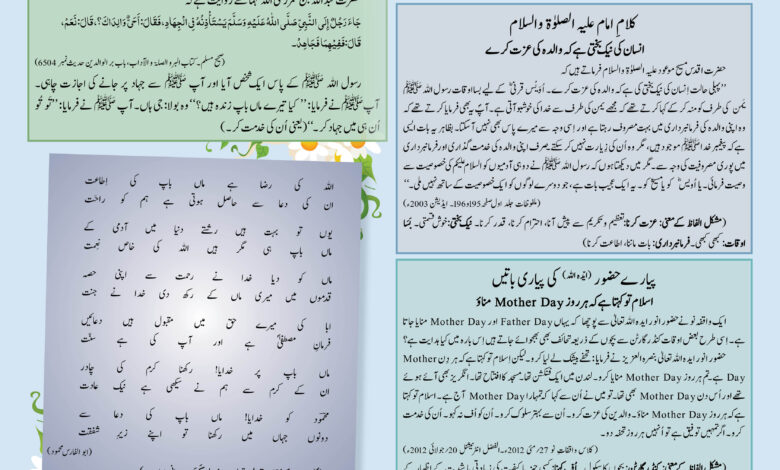 جَاءَ رَجُلٌ إِلَى النَّبِيِّ صَلَّى اللهُ عَلَيْهِ وَسَلَّمَ يَسْتَأْذِنُهُ فِي الْجِهَادِ، فَقَالَ: أَحَيٌّ وَالِدَاكَ؟، قَالَ: نَعَمْ،
قَالَ: فَفِيهِمَا فَجَاهِدْ۔
(صحیح مسلم۔ کتاب البر و الصلة و الآداب، باب بر الوالدین حدیث نمبر 6504)
رسول اللہ ﷺ کے پاس ایک شخص آیا اور آپ ﷺ سے جہاد پر جانے کی اجازت چاہی۔
آپ ﷺ نے فرمایا: ’’کیا تیرے ماں باپ زندہ ہیں؟‘‘ وہ بولا: جی ہاں۔ آپ ﷺ نے فرمایا: ’’تُو تُو
اُن ہی میں جہاد کر۔‘‘ (یعنی اُن کی خدمت کر۔)
اللہ کی رضا ہے ماں باپ کی اِطاعت
ان کی دعا سے حاصل ہوتی ہے ہم کو راحت
یوں تو بہت ہیں رشتے دنیا میں آدمی کے
ماں باپ ہی مگر ہیں اللہ کی خاص نعمت
ماں کو دیا خدا نے رحمت سے اپنی حصہ
قدموں میں میری ماں کے رکھ دی خدا نے جنت
ابا کی میرے حق میں مقبول ہیں دعائیں
فرمانِ مصطفیٰؐ ہے اور آپ کی ہے سنّت
ماں باپ پر خدایا! رکھنا کرم کی چادر
ان کے کرم سے ہم نے سیکھی ہے نیک عادت
محمود کو خدایا! ماں باپ کی دعا سے
دونوں جہاں میں رکھنا تو اپنے زیرِ شفقت
(ابو الفارس محمود)
کلامِ امام علیہ الصلوٰۃ والسلام
انسان کی نیک بختی ہے کہ والدہ کی عزت کرے
حضرت اقدس مسیح موعود علیہ الصلوٰۃ والسلام فرماتے ہیں کہ
’’پہلی حالت انسان کی نیک بختی کی ہے کہ والدہ کی عزت کرے۔ اُویس قرنیؓ کے لیے بسا اوقات رسول اللہ ﷺ
یمن کی طرف کو منہ کر کے کہا کرتے تھے کہ مجھے یمن کی طرف سے خدا کی خوشبو آتی ہے۔ آپؐ یہ بھی فرمایا کرتے تھے کہ
وہ اپنی والدہ کی فرمانبرداری میں بہت مصروف رہتا ہے اور اِسی وجہ سے میرے پاس بھی نہیں آ سکتا۔ بظاہر یہ بات ایسی
ہے کہ پیغمبر خدا ﷺ موجود ہیں، مگر وہ اُن کی زیارت نہیں کر سکتے۔ صرف اپنی والدہ کی خدمت گذاری اور فرمانبرداری
میں پوری مصروفیت کی وجہ سے۔ مگر میں دیکھتا ہوں کہ رسول اللہ ﷺ نے دو ہی آدمیوں کو السلام علیکم کی خصوصیت سے
وصیت فرمائی۔ یا اویسؓ کو یا مسیح کو۔ یہ ایک عجیب بات ہے، جو دوسرے لوگوں کو ایک خصوصیت کے ساتھ نہیں ملی۔‘‘
(ملفوظات جلد اول صفحہ 195تا196۔ ایڈیشن 2003ء)
(مشکل الفاظ کے معنی: عزت کرنا: تعظیم و تکریم سے پیش آنا، احترام کرنا، قدر کرنا۔ نیک بختی: خوش قسمتی۔ بسا
اوقات: کبھی کبھی۔ فرمانبرداری: بات ماننا، اطاعت کرنا)
پیارے حضور (ایّدہ اللہ) کی پیاری باتیں
اسلام تو کہتا ہے کہ ہر روز Mother Day مناؤ
ایک واقفہ نو نے حضور انور ایدہ اللہ تعالیٰ سے پوچھا کہ یہاں Father Day اور Mother Day منایا جاتا
ہے۔ اِسی طرح بعض اوقات کنڈر گارٹن سے بچوں کے ذریعہ تحائف بھی بھجوائے جاتے ہیں اِس بارہ میں کیا ہدایت ہے؟
حضور انور ایدہ اللہ تعالیٰ بنصرہ العزیز نے فرمایا: تحفے بیشک لے لیا کرو۔ لیکن اسلام تو کہتا ہے کہ ہر دن Mother
Day ہے۔ تم ہر روز Mother Day منایا کرو۔ لندن میں ایک فنکشن تھا۔ مسجد کا افتتاح تھا۔ انگریز بھی آئے ہوئے
تھے اور اُس دن Mother Day بھی تھا۔ تو میں نے اُن سے کہا کہ تمہارا Mother Day آج ہے۔ اسلام تو کہتا
ہے کہ ہر روز Mother Day مناؤ۔ والدین کی عزت کرو۔ اُن سے بہتر سلوک کرو۔ اُن کو اُف نہ کہو۔ اُن کی خدمت
کرو۔ اگر تمہیں توفیق ہے تو اُنہیں ہر روز تحفہ دو۔
(کلاس واقفات نو 27؍مئی 2012ء۔ الفضل انٹرنیشنل 20؍جولائی 2012ء)